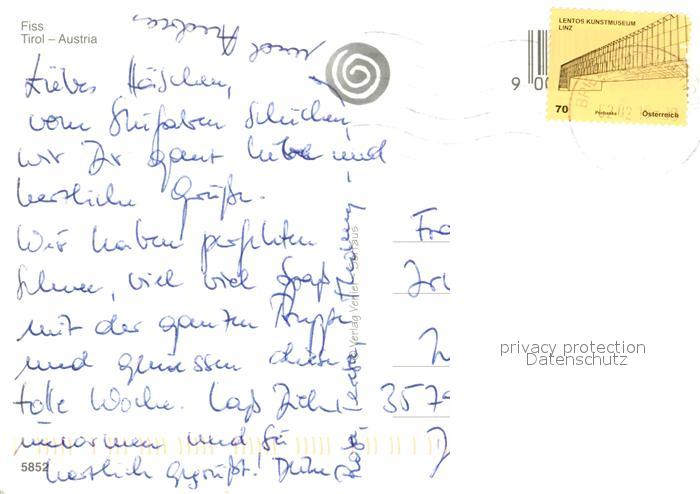 Fiss
Tirol – Austria
und Andrea,
Liebes Häschen,
vom Skifahren schicken
wir Dir ganz liebe und
herzliche Grüße.
Wir haben perfekten
Schnee, viel viel Spaß
mit der ganzen Truppe
und genießen diese
tolle Woche. Lass Dich
umarmen und sei
herzlich gegrüßt! Deine
LENTOS KUNSTMUSEUM
LINZ
70
Österreich
9 00
Verlag
Fra
357
privacy protection
Datenschutz
5852